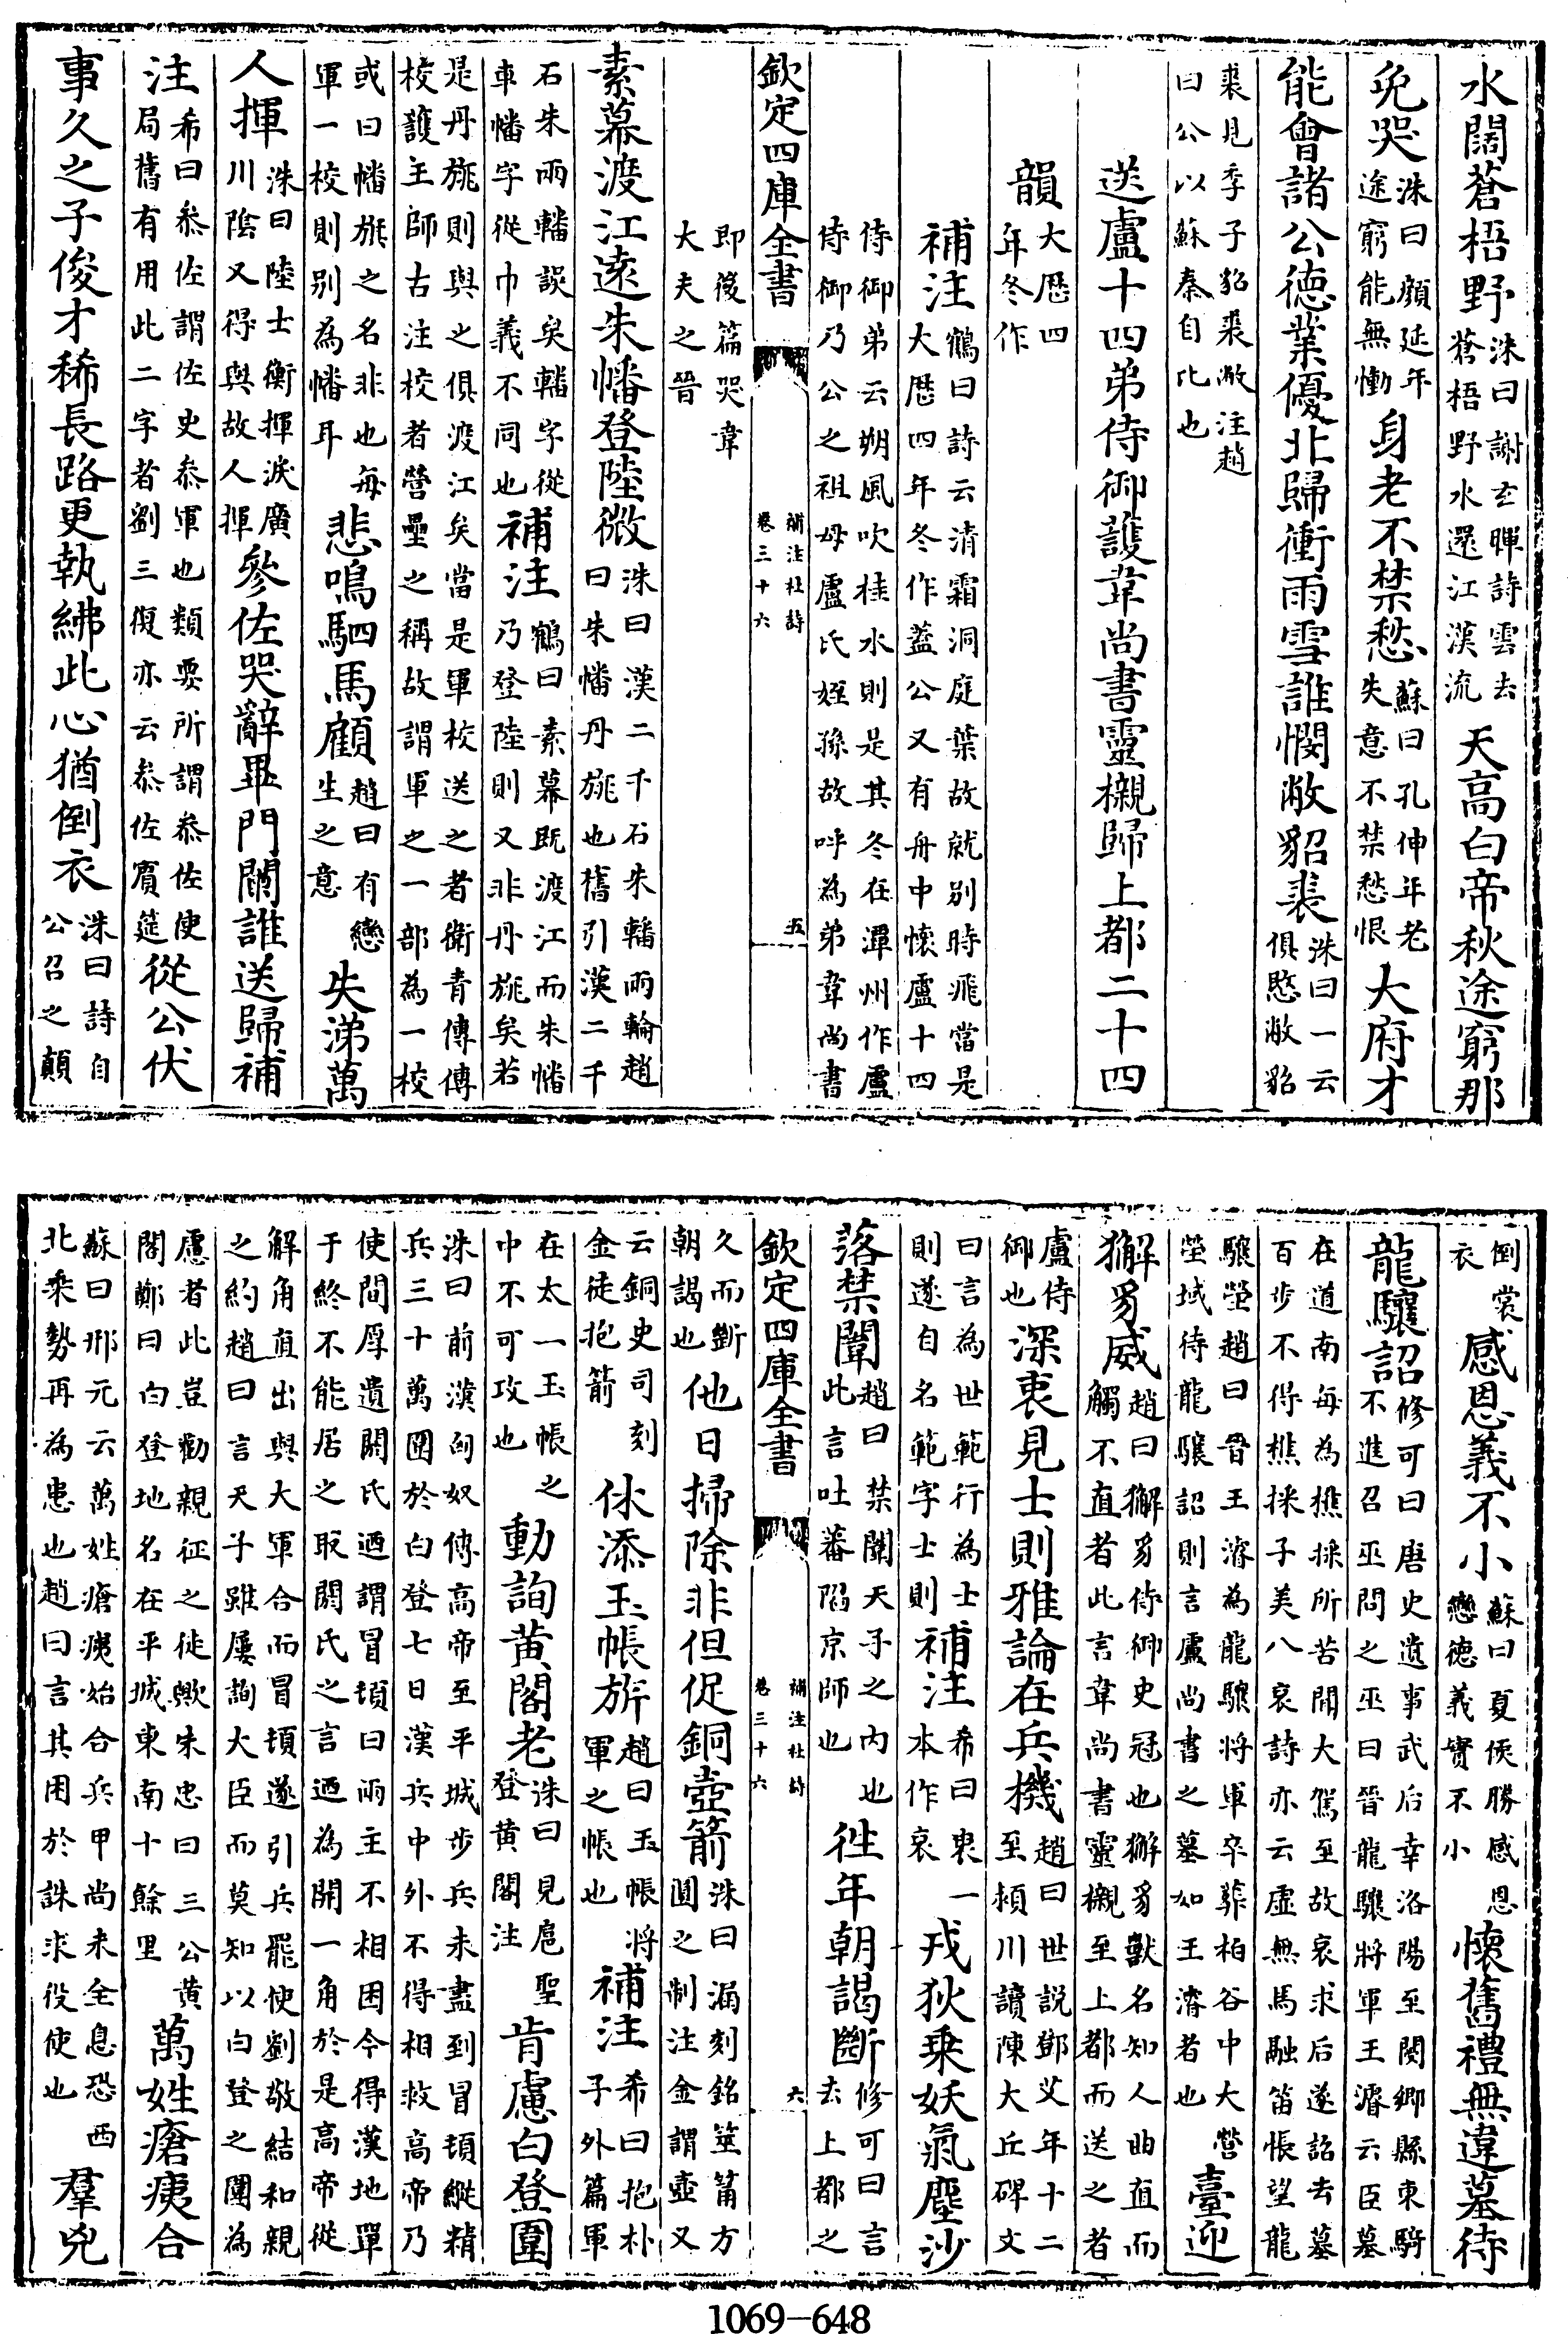 水闊蒼梧野洙曰謝玄暉詩雲去蒼梧野水還江漢流天高白帝秋途窮那
免哭洙曰顔延年途窮能無慟身老不禁愁蘇曰孔伸年老失意不禁愁恨大府才
能會諸公徳業優北歸衝雨雪誰憫敝貂裘洙曰一云俱愍敝貂
裘見季子貂裘敝注趙曰公以蘇秦自比也
送盧十四弟侍御護韋尚書靈櫬歸上都二十四
韻大歴四年冬作
補注鶴曰詩云清霜洞庭葉故就别時飛當是大歴四年冬作葢公又有舟中懷盧十四
侍御弟云朔風吹桂水則是其冬在潭州作盧侍御乃公之祖母盧氏姪孫故呼為弟韋尚書
欽定四庫全書 補注杜詩 卷三十六 五
即後篇哭韋大夫之晉
素幕渡江逺朱幡登陸微洙曰漢二千石朱轓兩輪趙曰朱幡丹旐也舊引漢二千
石朱兩轓誤矣轓字從車幡字從巾義不同也補注鶴曰素幕既渡江而朱幡乃登陸則又非丹旐矣若
是丹旐則與之俱渡江矣當是軍校送之者衛青傳傳校護主師古注校者營壘之稱故謂軍之一部為一校
或曰幡旗之名非也每軍一校則别為幡耳悲鳴駟馬顧趙曰有戀生之意失涕萬
人揮洙曰陸士衡揮淚廣川隂又得與故人揮參佐哭辭畢門闌誰送歸補
注希曰叅佐謂佐史叅軍也類要所謂叅佐使局舊有用此二字者劉三復亦云叅佐賔筵從公伏
事久之子俊才稀長路更執紼此心猶倒衣洙曰詩自公召之顛
倒裳衣感恩義不小蘇曰夏侯勝感恩戀德義實不小懷舊禮無違墓待
龍驤詔修可曰唐史遺事武后幸洛陽至閿鄉縣東騎不進召巫問之巫曰晉龍驤將軍王濬云臣墓
在道南每為樵採所苦聞大駕至故哀求后遂詔去墓百步不得樵採子美八哀詩亦云虛無馬融笛悵望龍
驤塋趙曰晉王濬為龍驤將軍卒葬柏谷中大營塋域待龍驤詔則言盧尚書之墓如王濬者也臺迎
獬豸威趙曰獬豸侍御史冠也獬豸獸名知人曲直而觸不直者此言韋尚書靈櫬至上都而送之者
盧侍御也深衷見士則雅論在兵機趙曰世説鄧艾年十二至潁川讀陳大丘碑文
曰言為世範行為士則遂自名範字士則補注希曰衷一本作哀戎狄乘妖氣塵沙
落禁闈趙曰禁闈天子之内也此言吐蕃陷京師也徃年朝謁斷修可曰言去上都之
欽定四庫全書 補注杜詩 卷三十六 六
久而斷朝謁也他日掃除非但促銅壺箭洙曰漏刻銘筮筩方圓之制注金謂壺又
云銅史司刻金徒抱箭休添玉帳旂趙曰玉帳將軍之帳也補注希曰抱朴子外篇軍
在太一玉帳之中不可攻也動詢黄閣老洙曰見扈聖登黄閣注肯慮白登圍
洙曰前漢匈奴傳高帝至平城步兵未盡到冒頓縱精兵三十萬圍於白登七日漢兵中外不得相救高帝乃
使間厚遺閼氏迺謂冒頓曰兩主不相困今得漢地單于終不能居之取閼氏之言迺為開一角於是高帝從
解角直出與大軍合而冒頓遂引兵罷使劉敬結和親之約趙曰言天子雖屢詢大臣而莫知以白登之圍為
慮者此豈勸親征之徒歟朱忠曰三公黄閣鄭曰白登地名在平城東南十餘里萬姓瘡痍合
蘇曰邢元云萬姓瘡痍始合兵甲尚未全息恐西北乘勢再為患也趙曰言其困於誅求役使也羣兇
1069-648